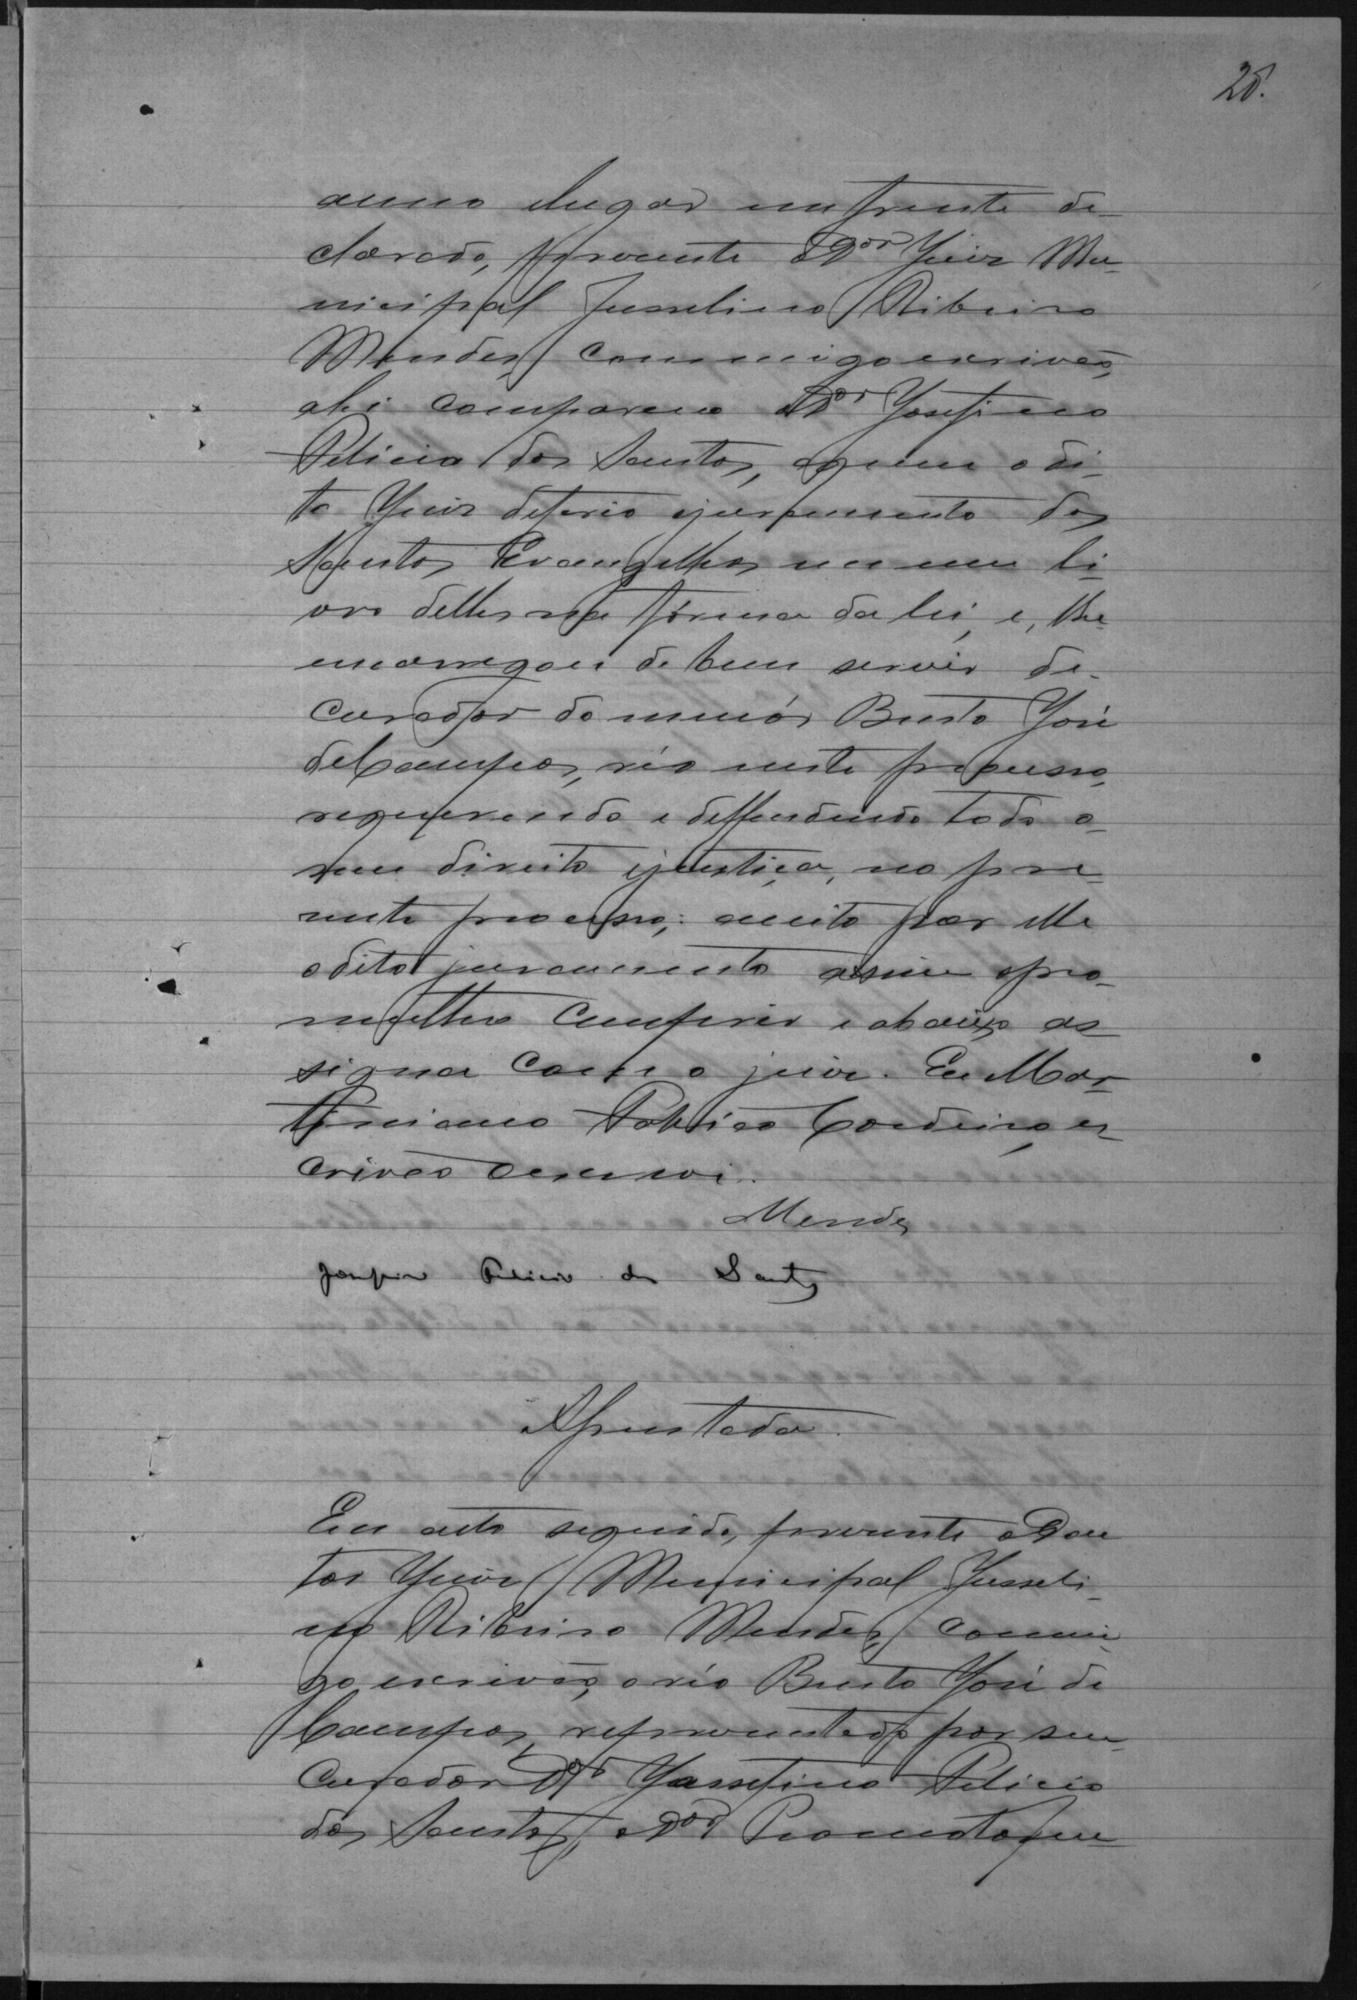 28.
anno lugar em frente de-
clarado, presente o Dor Juiz Mu-
nicipal Jusselino Ribeiro
Mendes, commigo escrivão,
ahi compareceo o Dor Josefino
Felicio dos Santos, a quem o di-
to Juiz deferio o juramento dos
Santos Evangelhos em um li-
vro delles na fórma da lei, e, lhe
encarregou de bem servir de
curador do menór Bento José
de Campos, réo neste processo,
requerendo e deffendendo todo o
seu direito e justiça, no pre-
sente processo; aceito por elle
o dito juramento assim o pro-
metteo cumprir e abaixo as-
signa com o juiz. Eu Mar-
tiniano Cordeiro, es-
crivão o escrevi.
Mendes
Josefino Felicio dos Santos
Assentada.
Em acto seguido, presente o Dou-
tor Juiz Municipal Jusseli-
no Ribeiro Mendes, commi-
go escrivão, o réo Bento José de
Campos, representado por seu
Curador Dor Jossefino Felicio
dos Santos, o Dor Promotor